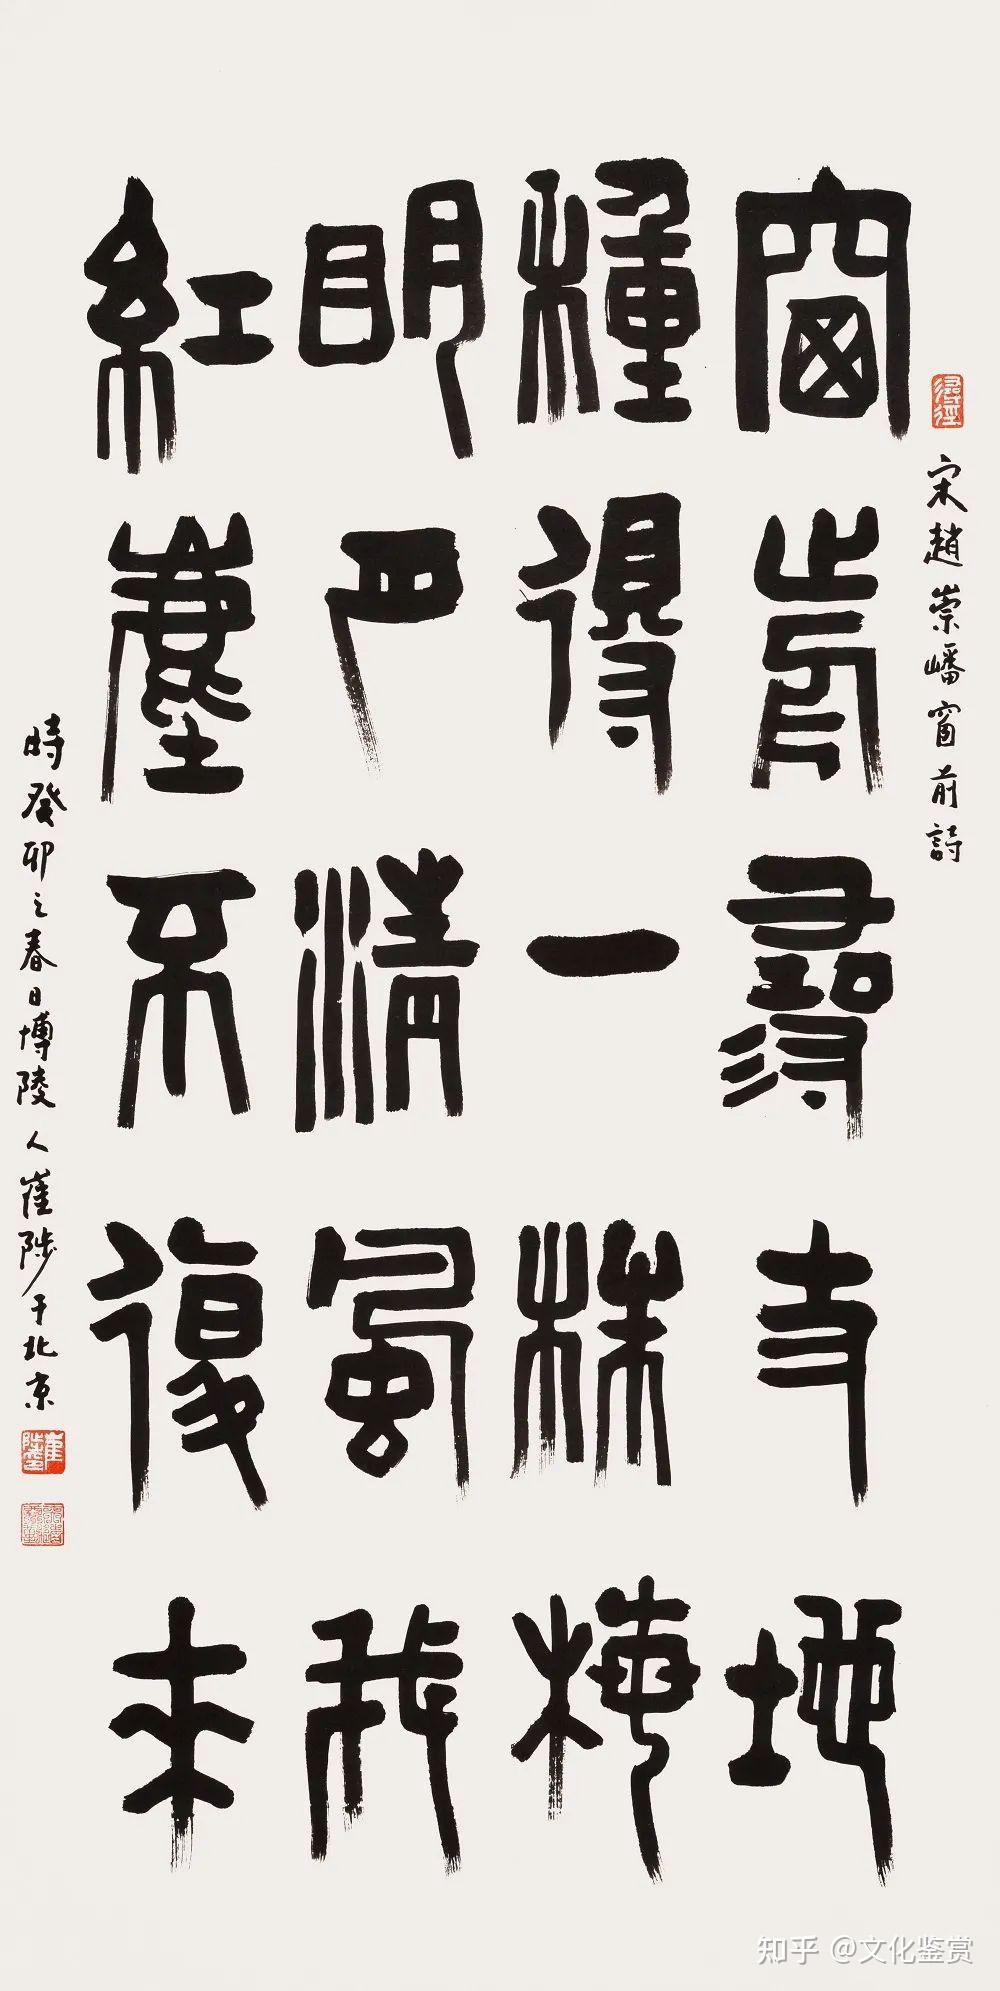 宋趙崇嶓窗前詩
窗前尋寸地
種得一株梅
明月清風我
紅塵不復來
時癸卯之春日博陵人崔陟于北京
知乎 @文化鉴赏